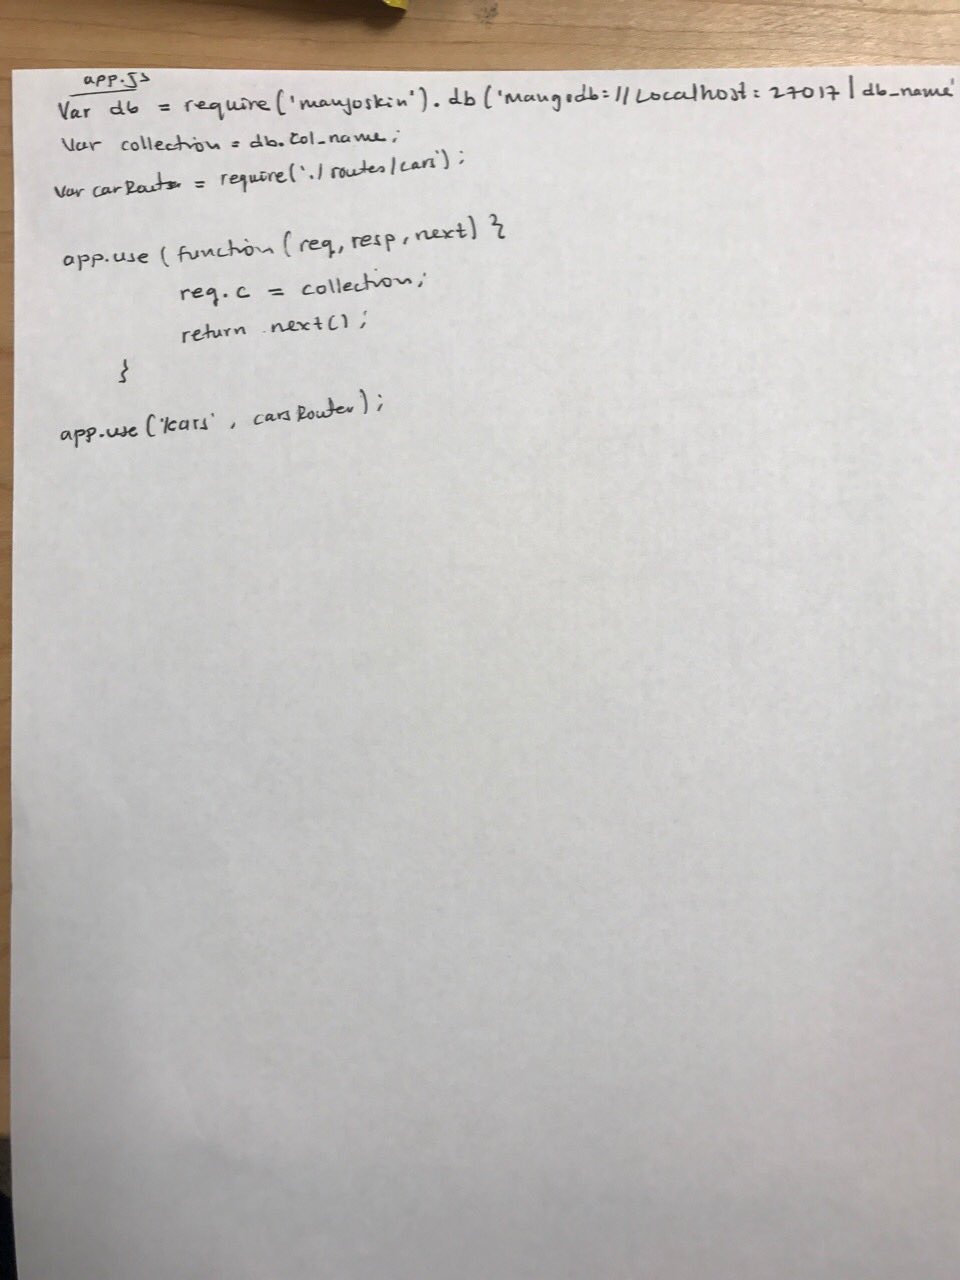 app.js
Var db = require('manjoskin').db('mangodb://Localhost:27017/db_name'
Var collection = db.col_name;
Var carRouter = require('./routes/cars');
app.use(function(req, resp, next) {
req.c = collection;
return next();
}
app.use('/cars', carsRouter);